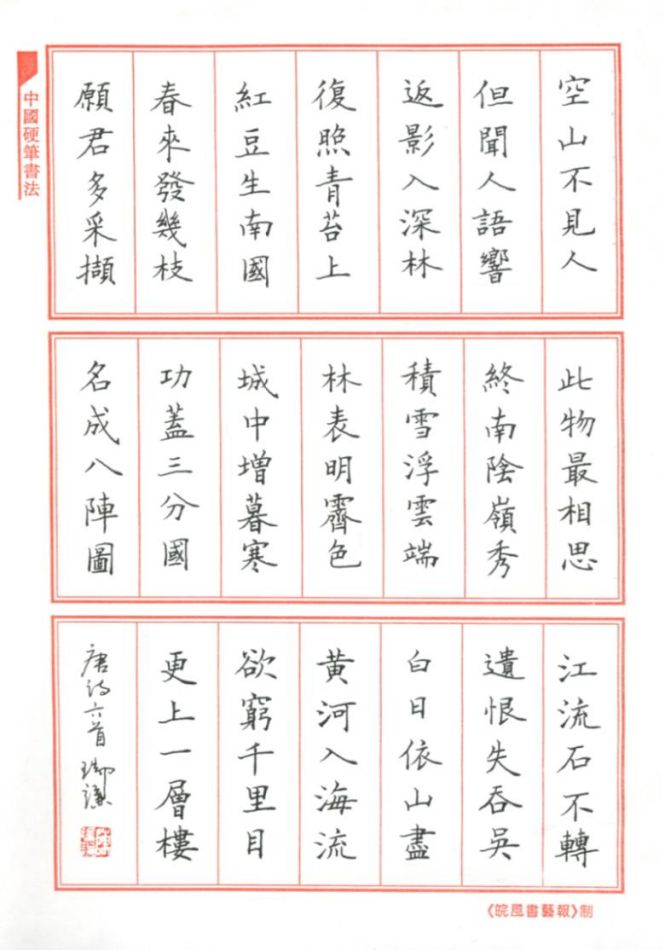 中國硬筆書法
空山不見人
但聞人語響
返影入深林
復照青苔上
紅豆生南國
春來發幾枝
願君多采擷
此物最相思
終南陰嶺秀
積雪浮雲端
林表明霽色
城中增暮寒
功蓋三分國
名成八陣圖
江流石不轉
遺恨失吞吳
白日依山盡
黄河入海流
欲窮千里目
更上一層樓
唐诗六首
《皖風書藝報》制